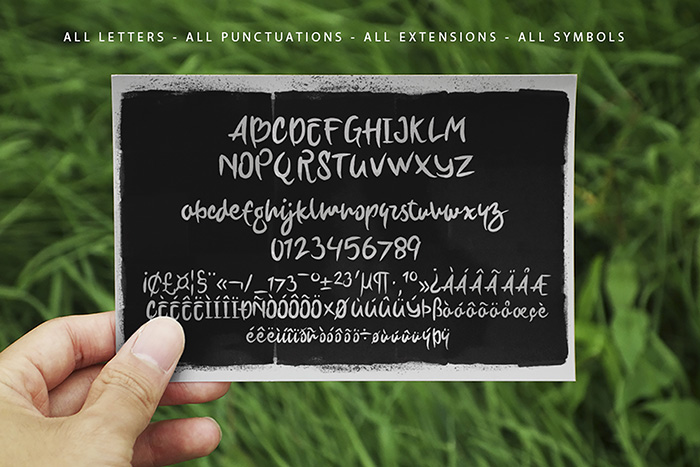 ALL LETTERS - ALL PUNCTUATIONS - ALL EXTENSIONS - ALL SYMBOLS
ABCDEFGHIJKLM
NOPQRSTUVWXYZ
abcdefghijklmnopqrstuvwxyz
0123456789
¡¢£¤¦§¨«¬/_173¯º±23´µ¶·,¹⁰»¿ÀÁÂÃÄÅÆ
ÇÈÉÊËÌÍÎÏÐÑÒÓÔÕÖ×ØÙÚÛÜÝÞßàáâãäåæçè
éêëìíîïðñòóôõö÷øùúûüýþÿ